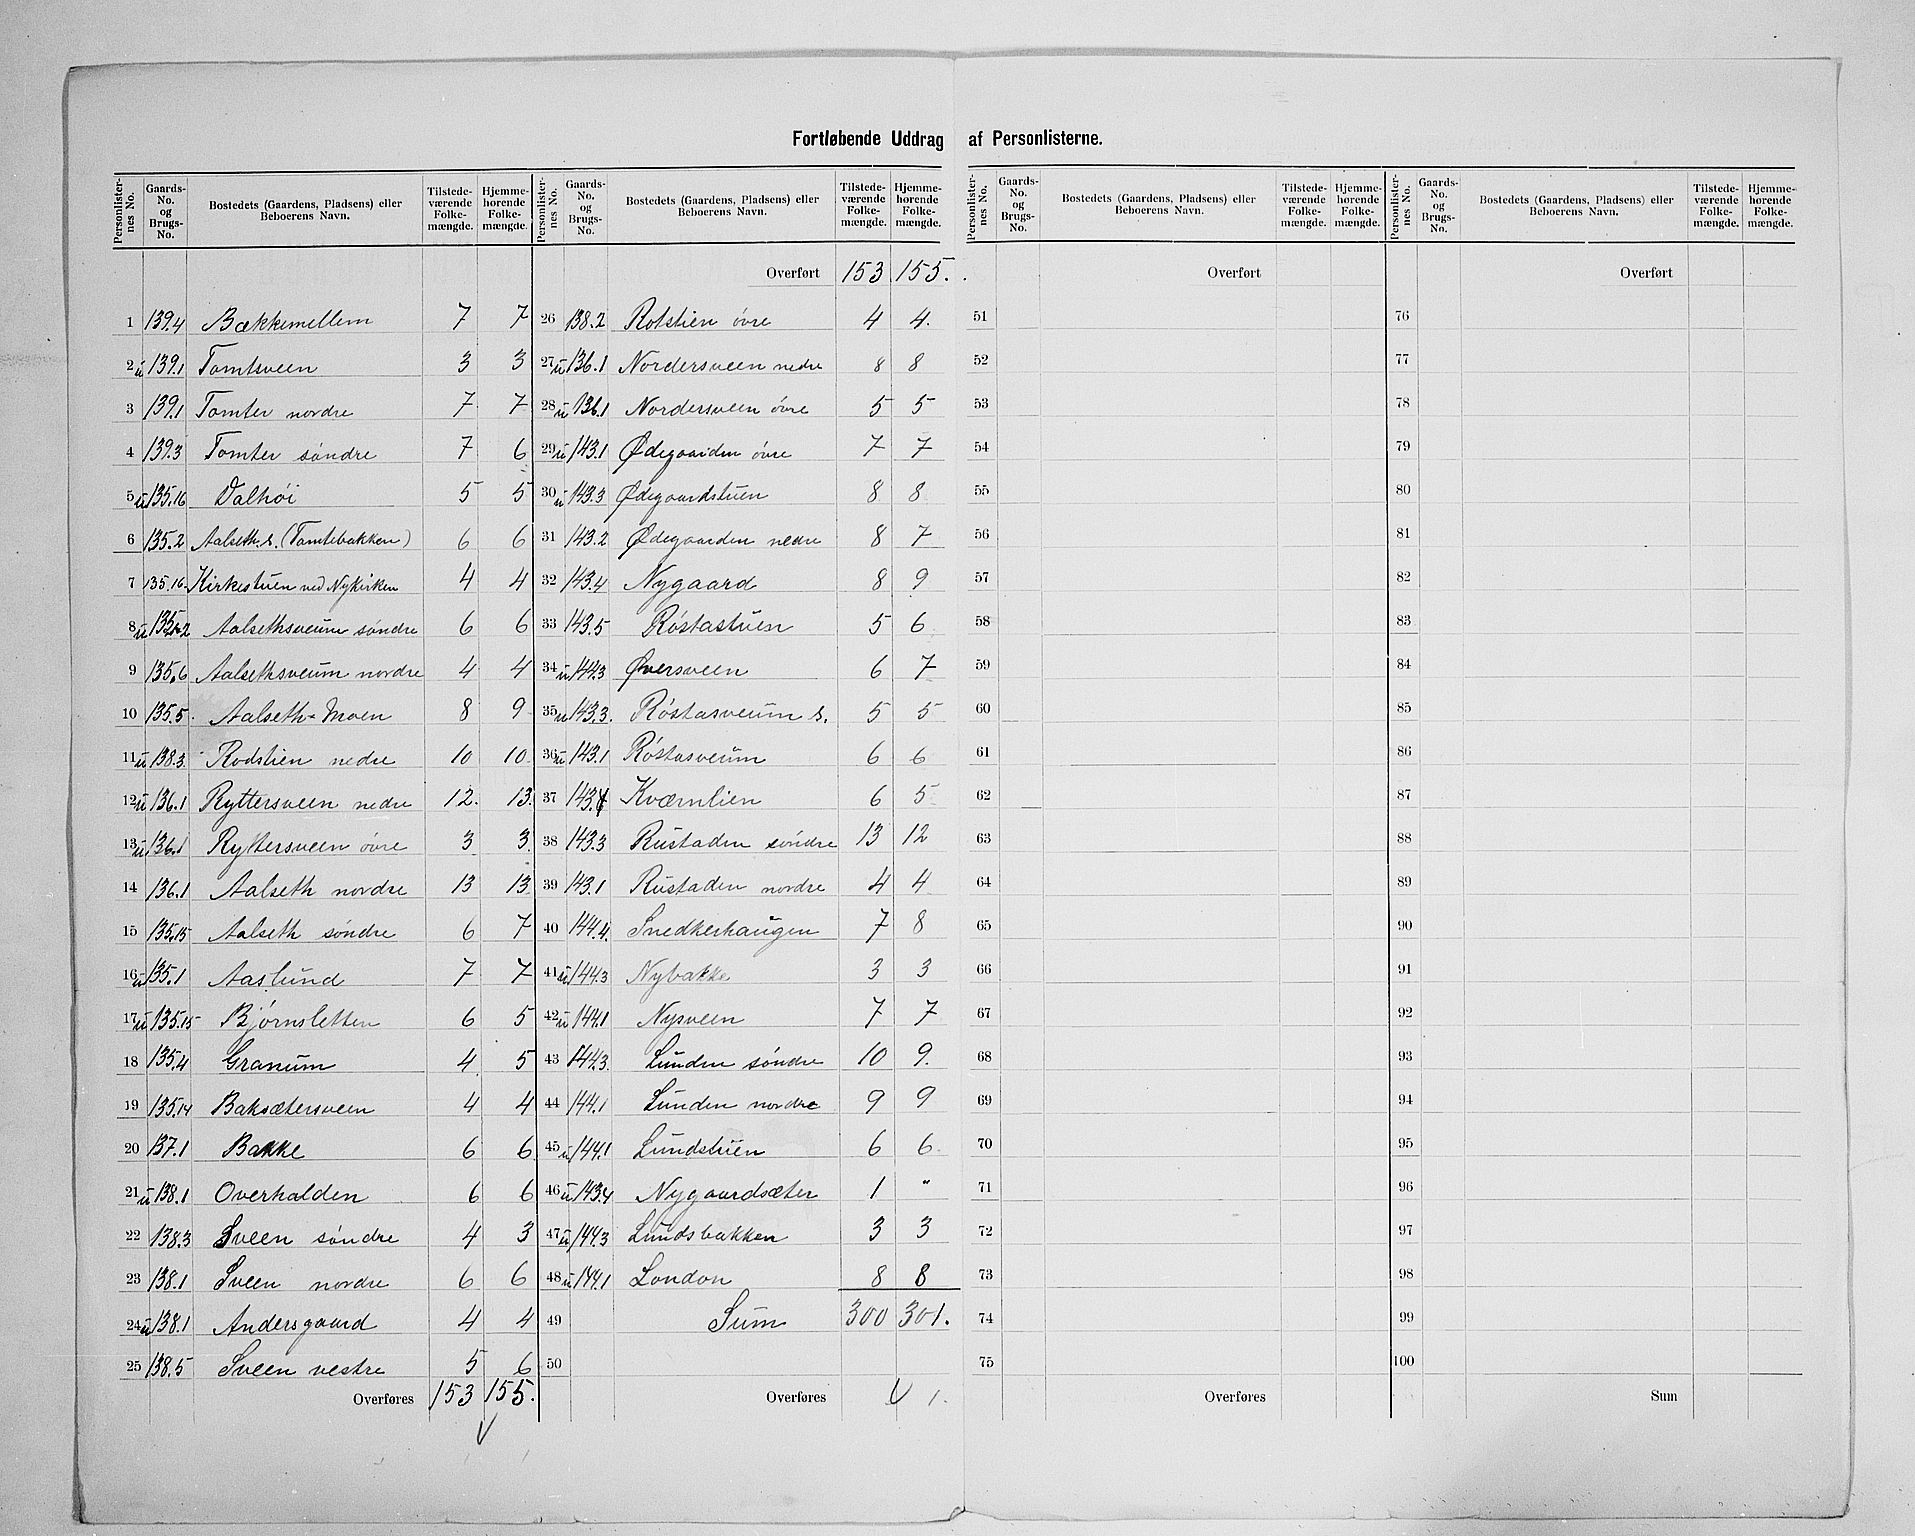 Fortløbende Uddrag af Personlisterne.
Personlister-nes No. | Gaards-No. og Brugs-No. | Bostedets (Gaardens, Pladsens) eller Beboerens Navn. | Tilstede-værende Folke-mængde. | Hjemme-hørende Folke-mængde.
1 139.4 Bækkemellem 7 7
2 u 139.1 Tomtsveen 3 3
3 139.1 Tomter nordre 7 7
4 139.3 Tomter søndre 7 6
5 u 135.16 Dalhøi 5 5
6 135.2 Aalseth s. (Tomtebakken) 6 6
7 135.16 Kirkestuen ved Nykirken 4 4
8 u 135.2 Aalsethsveum søndre 6 6
9 135.6 Aalsethsveum nordre 4 4
10 135.5. Aalseth-Moen 8 9
11 u 138.3 Rodstien nedre 10 10
12 u 136.1 Ryttersveen nedre 12. 13.
13 u 136.1 Ryttersveen øvre 3 3
14 136.1 Aalseth nordre 13 13
15 135.15 Aalseth søndre 6 7
16 u 135.1 Aaslund 7 7
17 u 135.15 Bjørnsletten 6 5
18 135.4 Granum 4 5
19 135.14 Baksætersveen 4 4
20 137.1 Bakke 6 6
21 u 138.1 Overhalden 6 6
22 138.3 Sveen søndre 4 3
23 138.1 Sveen nordre 6 6
24 u 138.1 Andersgaard 4 4
25 138.5 Sveen vestre 5 6
Overføres 153 155.
Personlister-nes No. | Gaards-No. og Brugs-No. | Bostedets (Gaardens, Pladsens) eller Beboerens Navn. | Tilstede-værende Folke-mængde. | Hjemme-hørende Folke-mængde.
Overført 153 155.
26 138.2 Rotstien øvre 4 4.
27 u 136.1 Nordersveen nedre 8 8
28 u 136.1 Nordersveen øvre 5 5
29 u 143.1 Ødegaarden øvre 7 7
30 u 143.3 Ødegaardstuen 8 8
31 143.2 Ødegaarden nedre 8 7
32 143.4 Nygaard 8 9
33 143.5 Røstastuen 5 6
34 u 144.3 Øversveen 6 7
35 u 143.3. Røstasveum s. 5 5
36 u 143.1 Røstasveum 6 6
37 Kværnlien 6 5
38 143.3 Rustaden søndre 13 12
39 143.1 Rustaden nordre 4 4
40 144.4. Snedkerhaugen 7 8
41 u 144.3 Nybakke 3 3
42 u 144.1 Nysveen 7 7
43 144.3. Lunden søndre 10 9.
44 144.1 Lunden nordre 9 9
45 u 144.1 Lundstuen 6 6.
46 u 143.4 Nygaardsæter 1 "
47 u 144.3 Lundsbakken 3 3
48 u 144.1 London 8 8
49 Sum 300 301.
50
Overføres 1.
Personlister-nes No. | Gaards-No. og Brugs-No. | Bostedets (Gaardens, Pladsens) eller Beboerens Navn. | Tilstede-værende Folke-mængde. | Hjemme-hørende Folke-mængde.
Overført
51
52
53
54
55
56
57
58
59
60
61
62
63
64
65
66
67
68
69
70
71
72
73
74
75
Overføres
Personlister-nes No. | Gaards-No. og Brugs-No. | Bostedets (Gaardens, Pladsens) eller Beboerens Navn. | Tilstede-værende Folke-mængde. | Hjemme-hørende Folke-mængde.
Overført
76
77
78
79
80
81
82
83
84
85
86
87
88
89
90
91
92
93
94
95
96
97
98
99
100
Sum